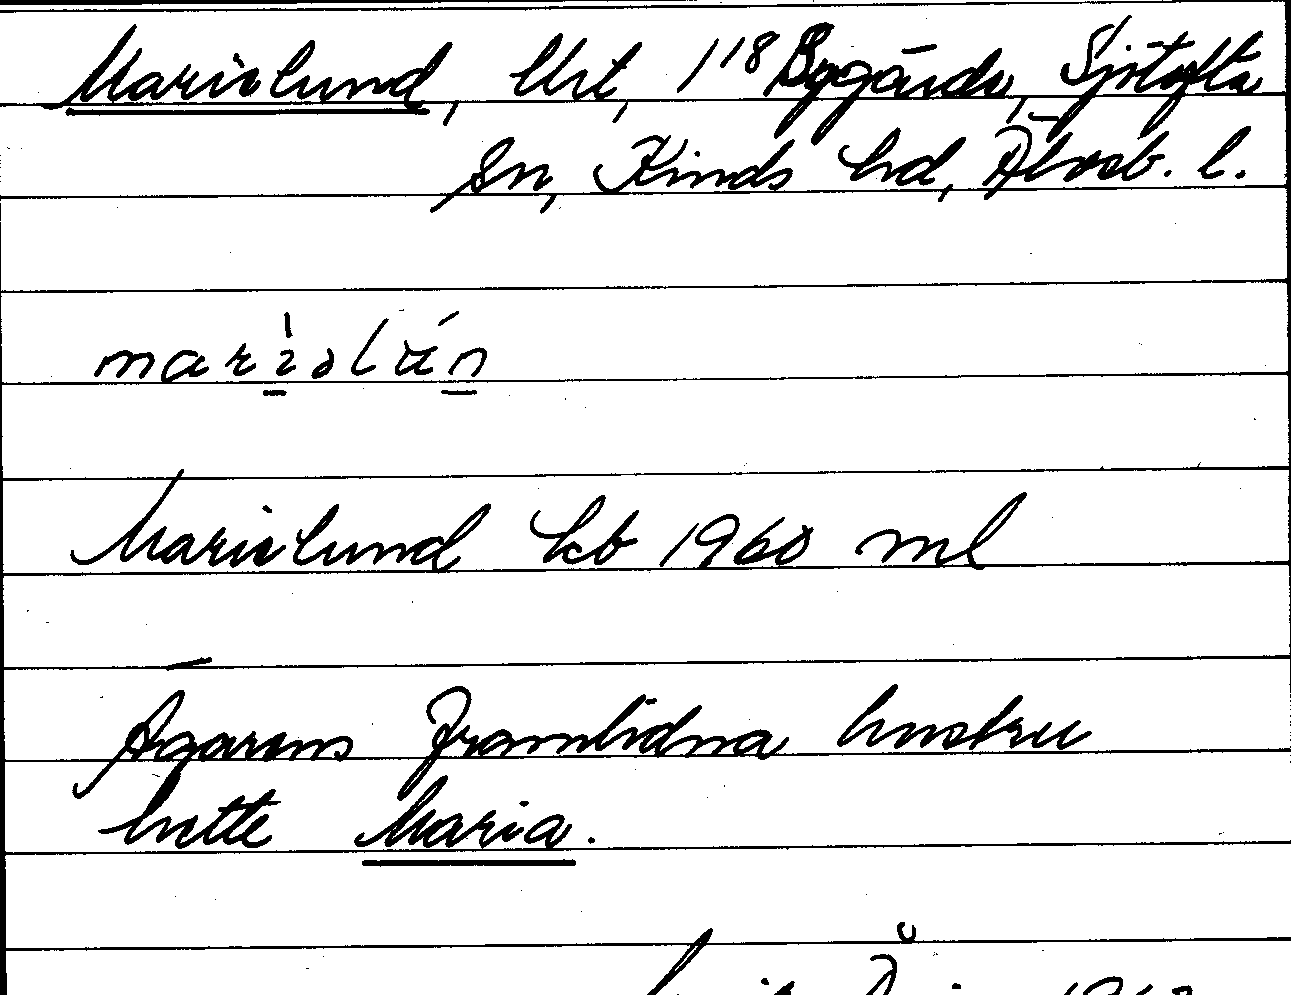 Marielund, lht, 1¹⁸ Bygårda, Sjötofta
sn, Kinds hd, Älvsb. l.
marìəlún
Marielund kb 1960 ml
Ägarens framlidna hustru
hette Maria.